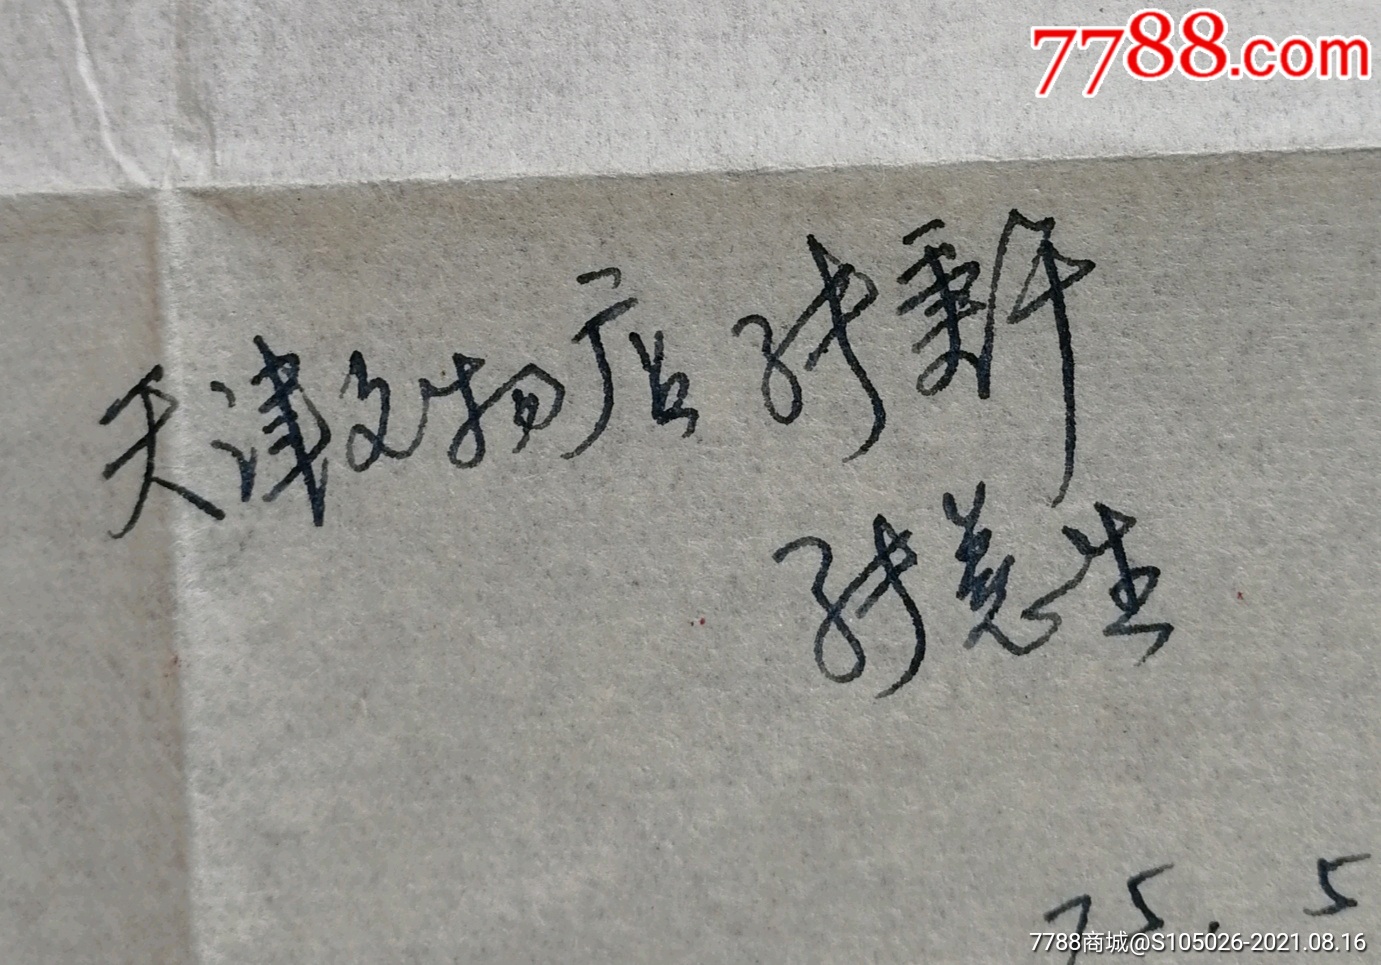 7788.com
天津文物店 张秉午
张慈生
75. 5
7788商城@S105026-2021.08.16